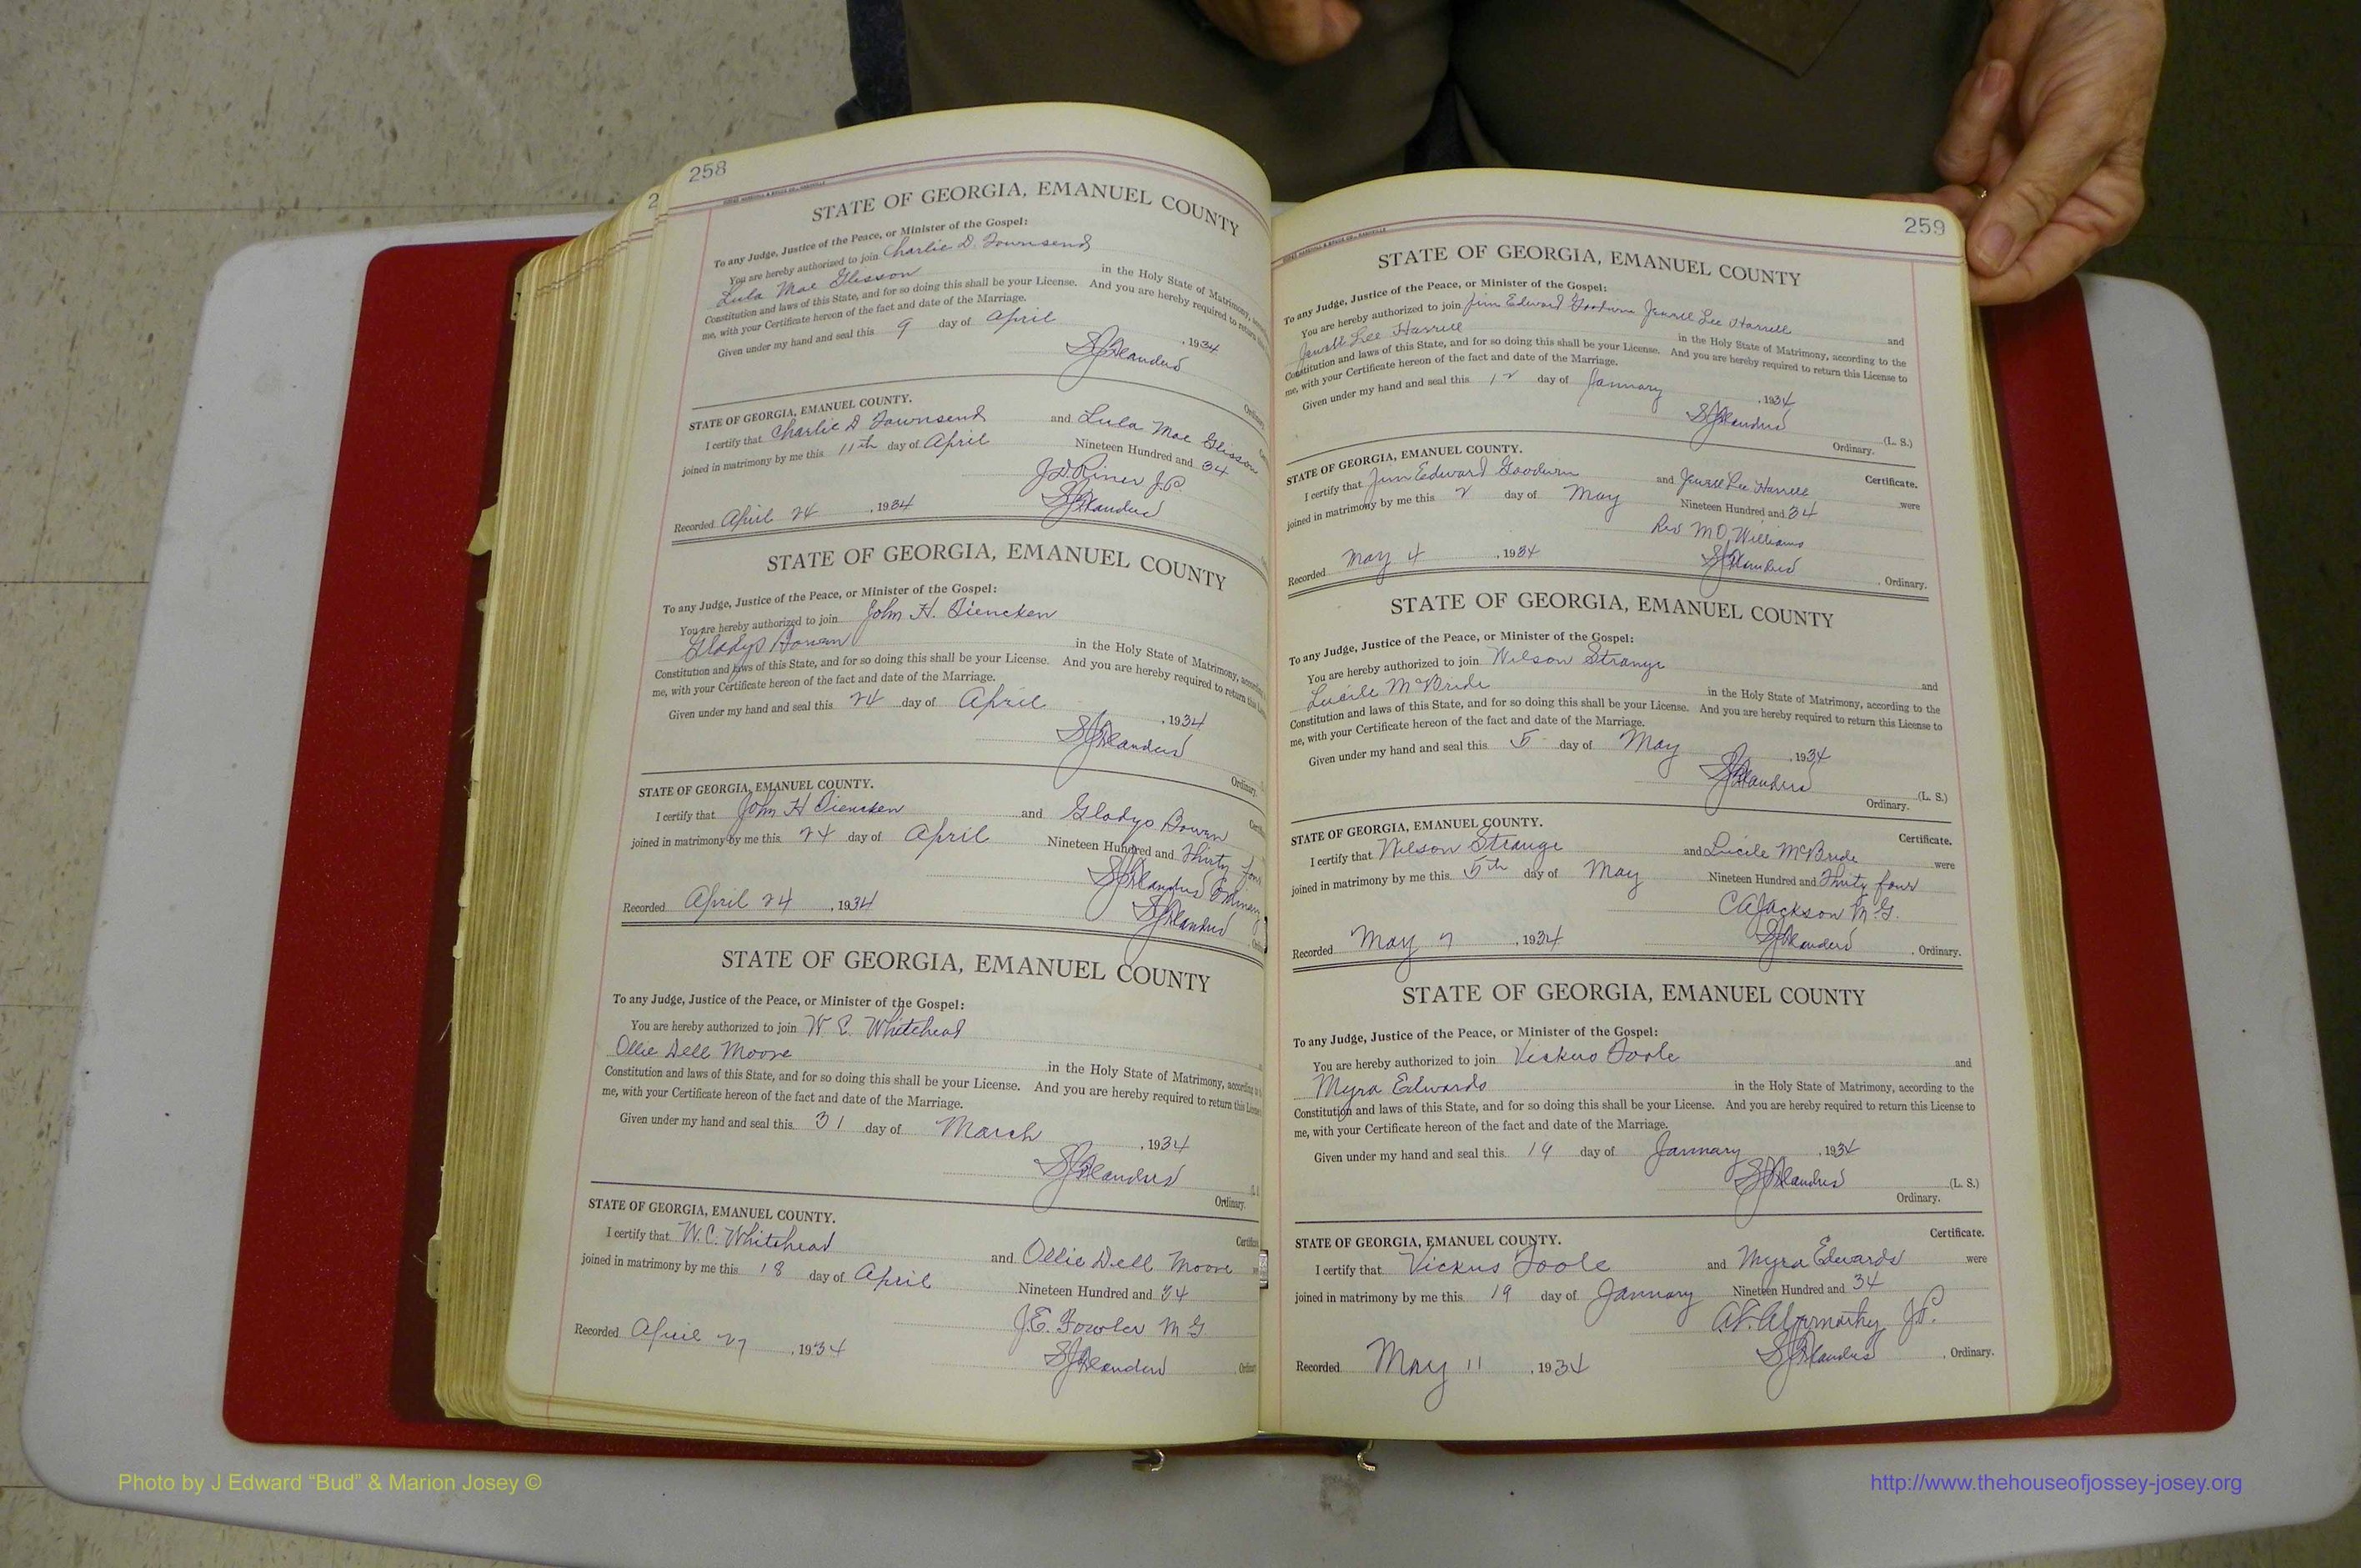 258
STATE OF GEORGIA, EMANUEL COUNTY
To any Judge, Justice of the Peace, or Minister of the Gospel:
You are hereby authorized to join Charlie D. Townsend
Lula Mae Glisson in the Holy State of Matrimony,
Constitution and laws of this State, and for so doing this shall be your License. And you are hereby required to return
me, with your Certificate hereon of the fact and date of the Marriage.
Given under my hand and seal this 9 day of April , 1934
STATE OF GEORGIA, EMANUEL COUNTY.
I certify that Charlie D Townsend and Lula Mae Glisson
joined in matrimony by me this 11th day of April Nineteen Hundred and 34
J.D. Riner J.P.
Recorded April 24 , 1934
STATE OF GEORGIA, EMANUEL COUNTY
To any Judge, Justice of the Peace, or Minister of the Gospel:
You are hereby authorized to join John H. Tiencken
Gladys Bowen in the Holy State of Matrimony,
Constitution and laws of this State, and for so doing this shall be your License. And you are hereby required to return this
me, with your Certificate hereon of the fact and date of the Marriage.
Given under my hand and seal this 24 day of April , 1934
Ordinary.
STATE OF GEORGIA, EMANUEL COUNTY.
I certify that John H Tiencken and Gladys Bowen
joined in matrimony by me this 24 day of April Nineteen Hundred and Thirty four
Ordinary
Recorded April 24 , 1934
STATE OF GEORGIA, EMANUEL COUNTY
To any Judge, Justice of the Peace, or Minister of the Gospel:
You are hereby authorized to join W. C. Whitehead
Ollie Dell Moore in the Holy State of Matrimony,
Constitution and laws of this State, and for so doing this shall be your License. And you are hereby required to return this
me, with your Certificate hereon of the fact and date of the Marriage.
Given under my hand and seal this 31 day of March , 1934
Ordinary.
STATE OF GEORGIA, EMANUEL COUNTY.
I certify that W.C. Whitehead and Ollie Dell Moore
joined in matrimony by me this 18 day of April Nineteen Hundred and 34
J.E. Fowler M G
Recorded April 27 , 1934
259
STATE OF GEORGIA, EMANUEL COUNTY
To any Judge, Justice of the Peace, or Minister of the Gospel:
You are hereby authorized to join Jim Edward Goodwin Jewell Lee Harrell and
Jewell Lee Harrell in the Holy State of Matrimony, according to the
Constitution and laws of this State, and for so doing this shall be your License. And you are hereby required to return this License to
me, with your Certificate hereon of the fact and date of the Marriage.
Given under my hand and seal this 12 day of January , 1934
(L. S.)
Ordinary.
STATE OF GEORGIA, EMANUEL COUNTY. Certificate.
I certify that Jim Edward Goodwin and Jewell Lee Harrell were
joined in matrimony by me this 2 day of May Nineteen Hundred and 34
Rev M.O. Williams
Recorded May 4 , 1934 , Ordinary.
STATE OF GEORGIA, EMANUEL COUNTY
To any Judge, Justice of the Peace, or Minister of the Gospel:
You are hereby authorized to join Wilson Strange and
Lucile McBride in the Holy State of Matrimony, according to the
Constitution and laws of this State, and for so doing this shall be your License. And you are hereby required to return this License to
me, with your Certificate hereon of the fact and date of the Marriage.
Given under my hand and seal this 5 day of May , 1934
(L. S.)
Ordinary.
STATE OF GEORGIA, EMANUEL COUNTY. Certificate.
I certify that Wilson Strange and Lucile McBride were
joined in matrimony by me this 5th day of May Nineteen Hundred and Thirty four
CA Jackson M.G.
Recorded May 7 , 1934 , Ordinary.
STATE OF GEORGIA, EMANUEL COUNTY
To any Judge, Justice of the Peace, or Minister of the Gospel:
You are hereby authorized to join Vickus Toole and
Myra Edwards in the Holy State of Matrimony, according to the
Constitution and laws of this State, and for so doing this shall be your License. And you are hereby required to return this License to
me, with your Certificate hereon of the fact and date of the Marriage.
Given under my hand and seal this 19 day of January , 1934
(L. S.)
Ordinary.
STATE OF GEORGIA, EMANUEL COUNTY. Certificate.
I certify that Vickus Toole and Myra Edwards were
joined in matrimony by me this 19 day of January Nineteen Hundred and 34
J.P.
Recorded May 11 , 1934 , Ordinary.
Photo by J Edward “Bud” & Marion Josey ©
http://www.thehouseofjossey-josey.org